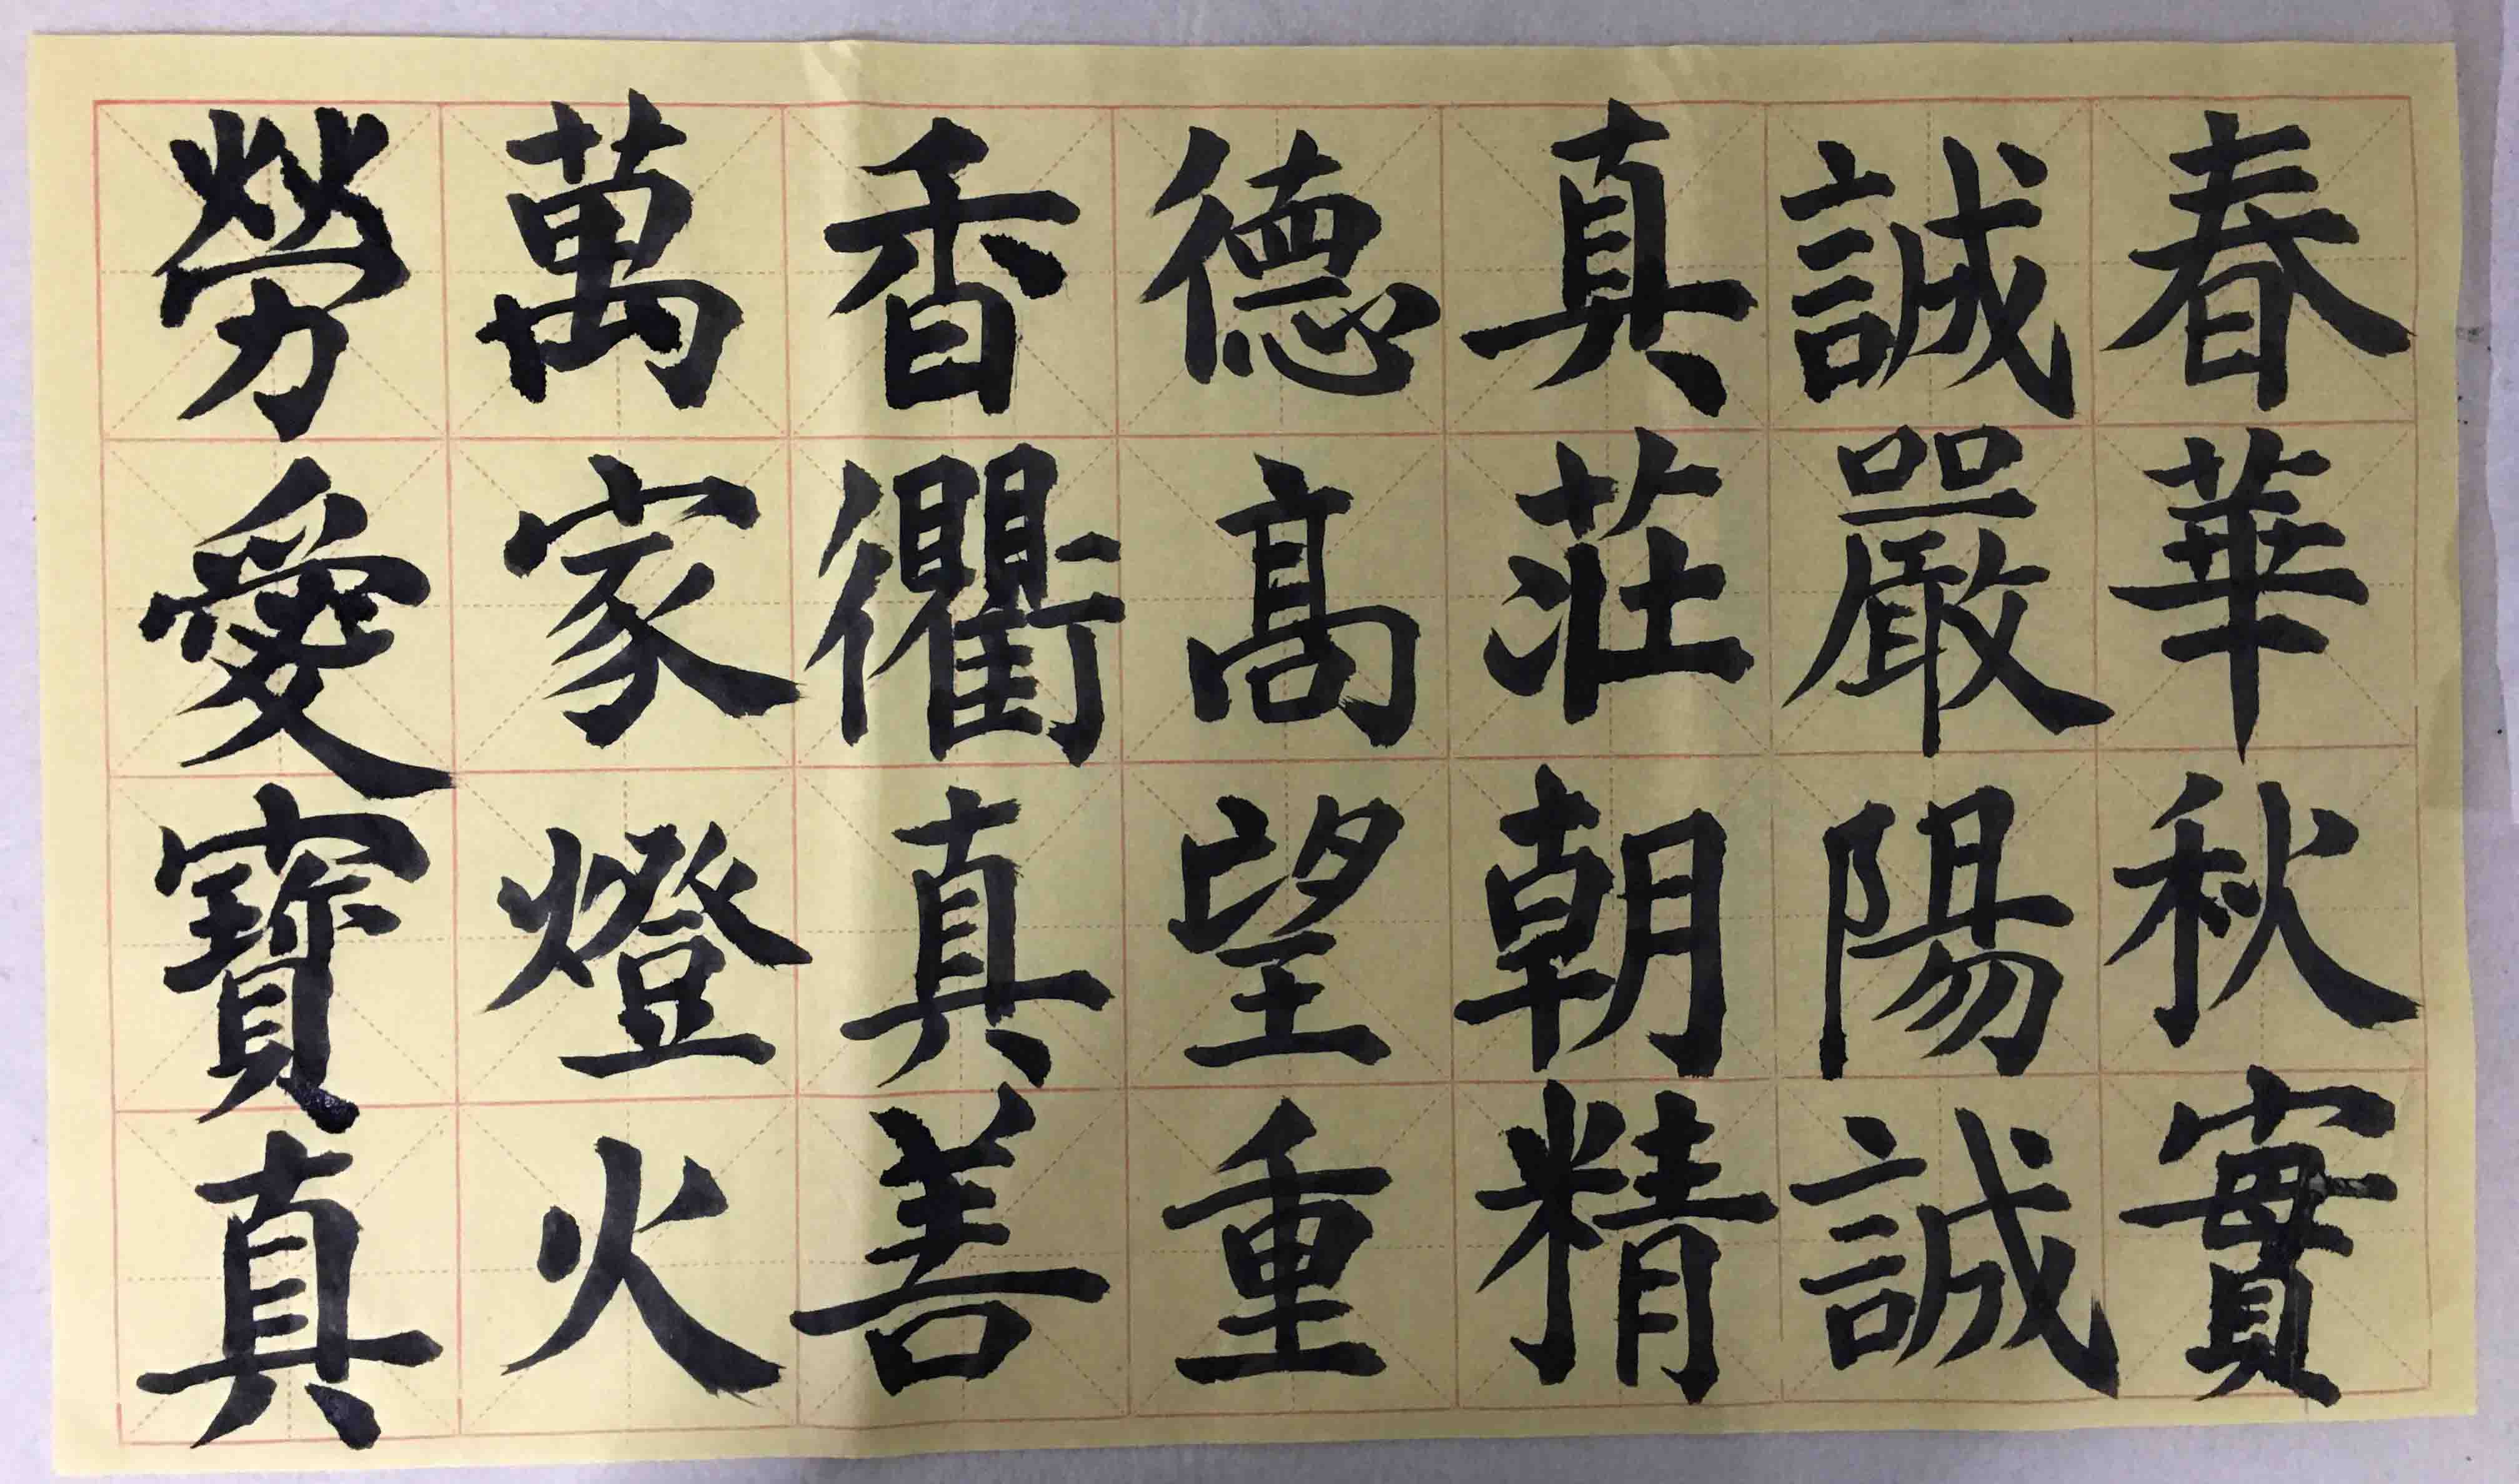 春華秋實
誠嚴陽誠
真莊朝精
德高望重
香衢真善
萬家燈火
勞愛寶真